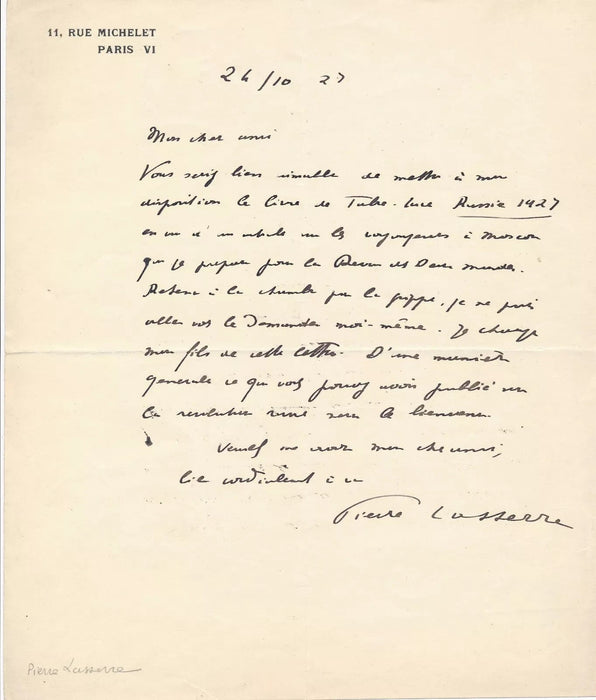 11, RUE MICHELET
PARIS VI
24/10 27
Mon cher ami
Vous seriez bien aimable de mettre à ma
disposition le livre de Russie 1927
en vue d'un article sur les voyageurs à Moscou
que je prépare pour la Revue des Deux mondes.
Retenu à la chambre par la grippe, je ne puis
aller vous le demander moi-même. Je charge
mon fils de cette lettre. D'une manière
generale ce que vous pouvez avoir publié sur
la revolution russe sera le bienvenu.
Veuillez me croire mon cher ami,
bien cordialement à vous
Pierre Lasserre
Pierre Lasserre